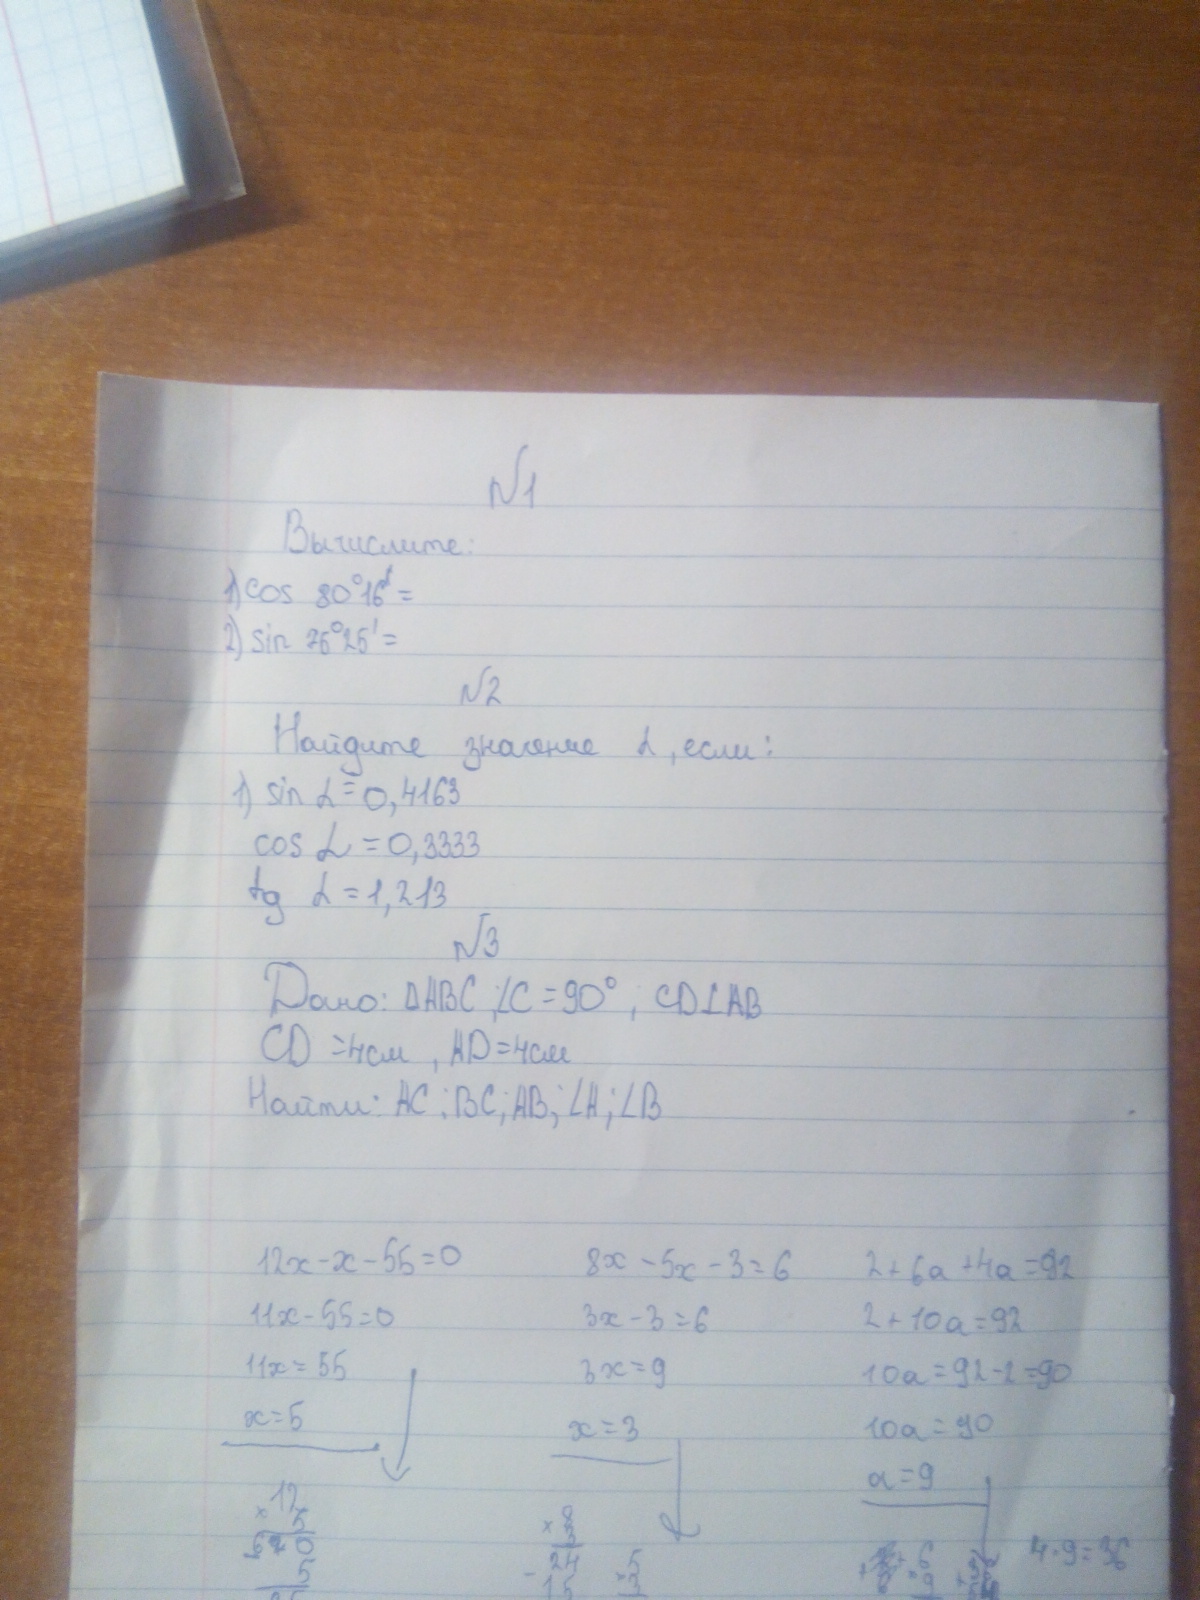 №1
Вычислите:
1) cos 80°16' =
2) sin 75°25' =
№2
Найдите значение α, если:
1) sin α = 0,4163
cos α = 0,3333
tg α = 1,213
№3
Дано: ΔABC, ∠C = 90°, CD⊥AB
CD = 4см, AD = 4см
Найти: AC; BC; AB; ∠A; ∠B
12x - x - 55 = 0
11x - 55 = 0
11x = 55
x = 5
× 12
5
60
5
8x - 5x - 3 = 6
3x - 3 = 6
3x = 9
x = 3
× 8
3
- 24
15
× 5
3
2 + 6a + 4a = 92
2 + 10a = 92
10a = 92 - 2 = 90
10a = 90
a = 9
6
9
4·9=36